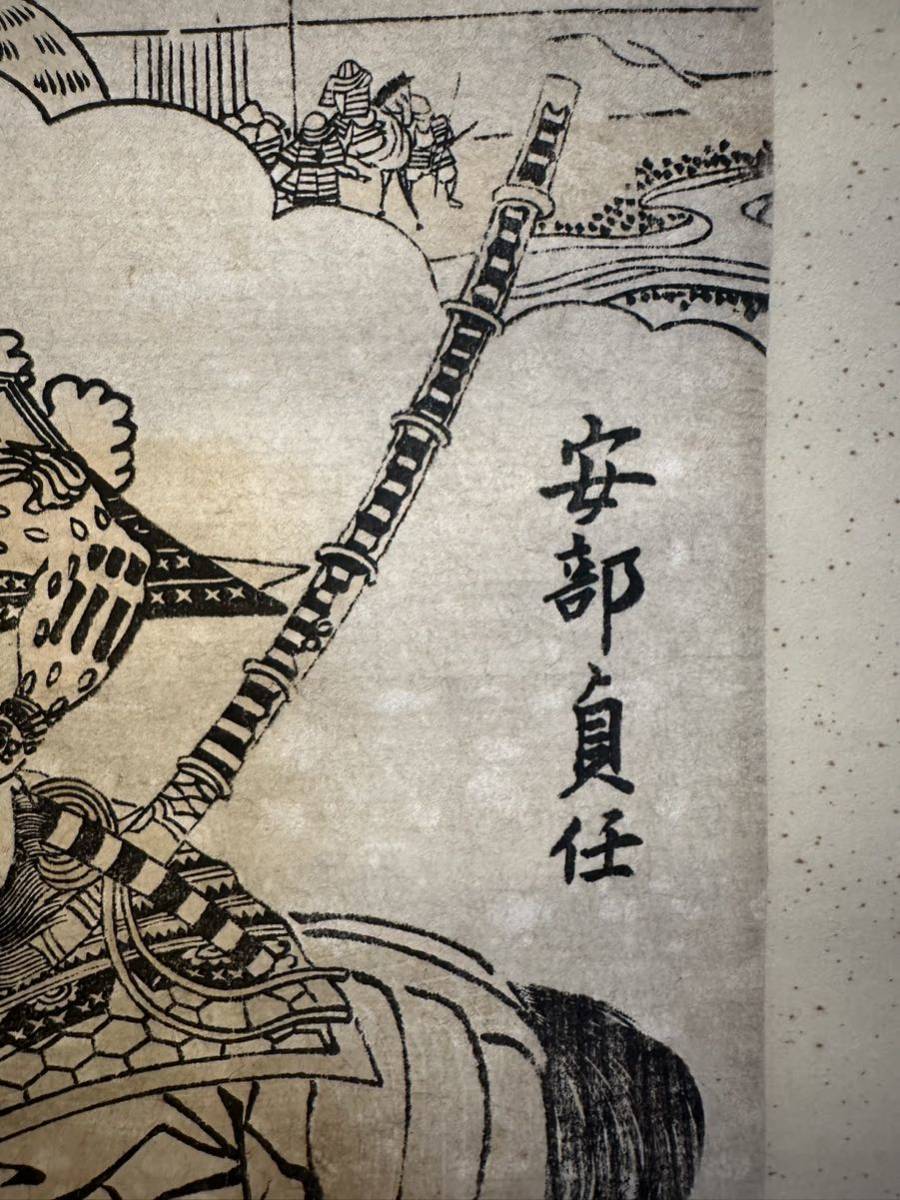 安部貞任